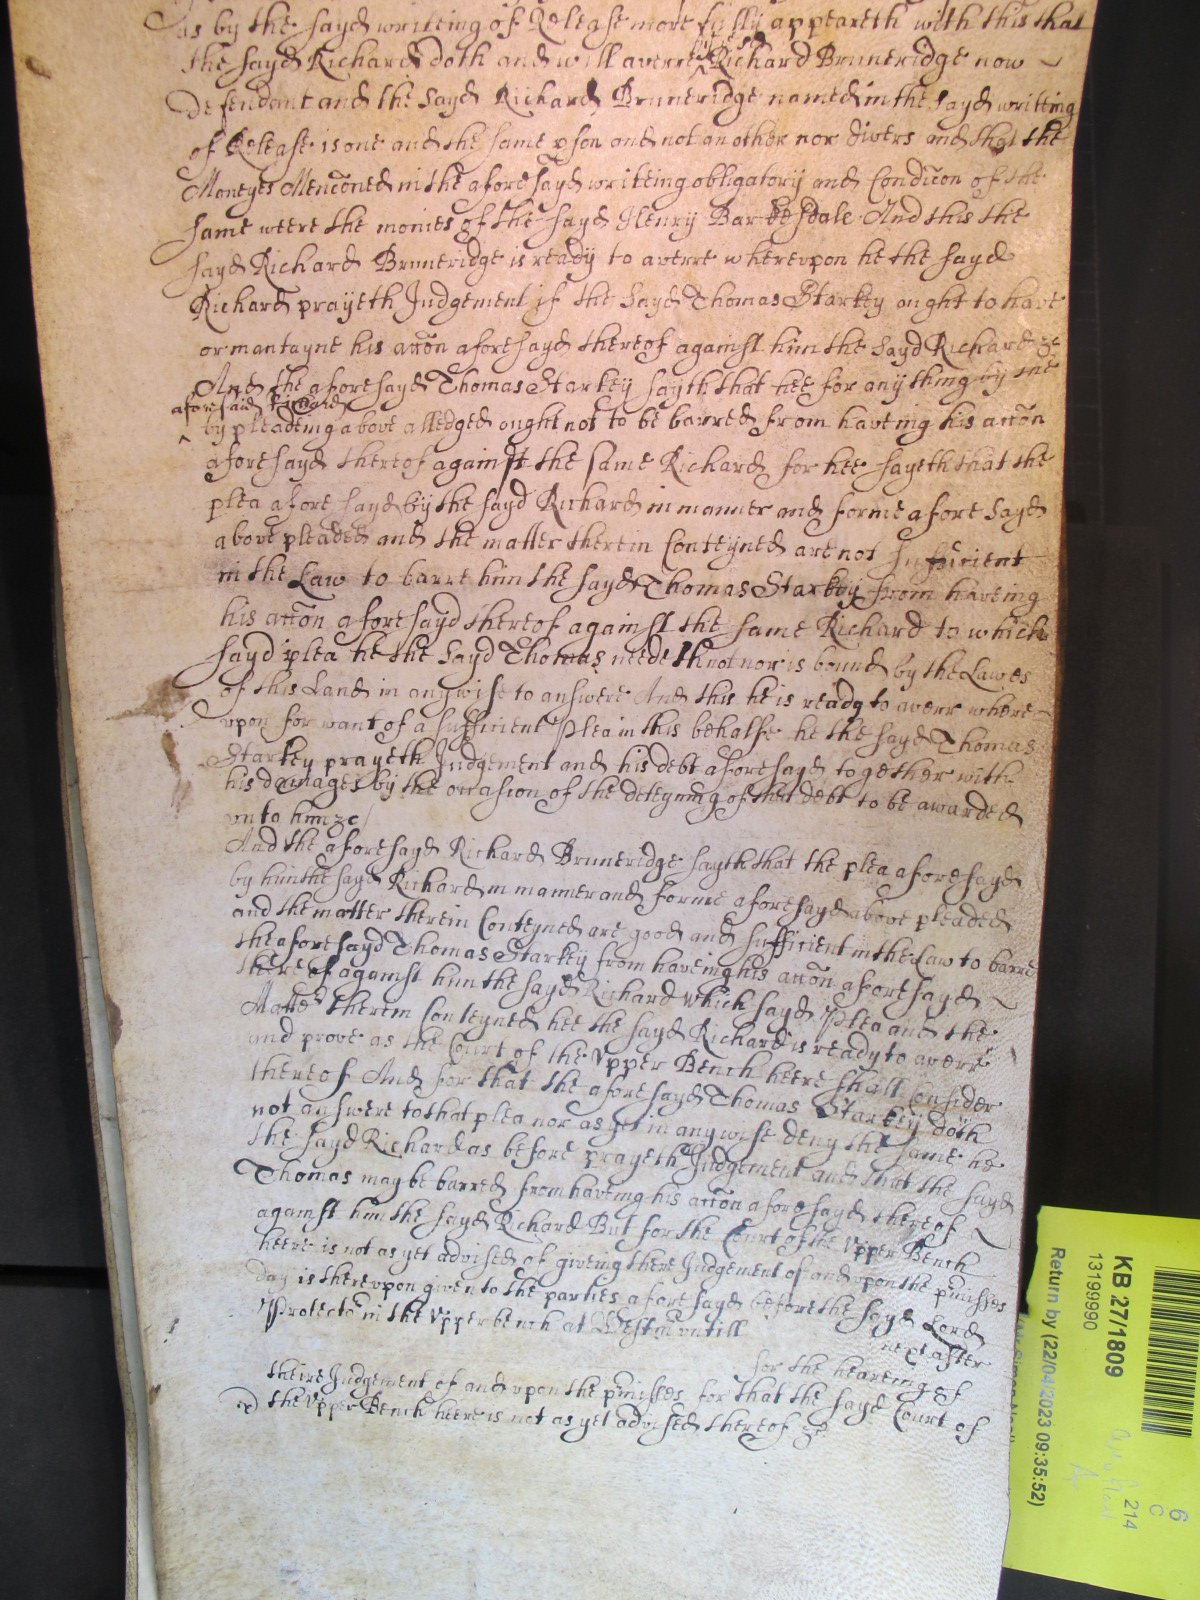 as by the sayd writeing of Release more fully appeareth with this that
the sayd Richard doth and will averre Richard Bruneridge now
Defendant and the sayd Richard Brunneridge named in the sayd writting
of Release is one and the same pson and not another nor divers and that the
Moneyes Menc̃oned in the aforesayd writteing obligatory and Condic̃on of the
same weere the monies of the sayd Henry Barkesdale And this the
sayd Richard Brunneridge is ready to averre wherevpon he the sayd
Richard prayeth Judgement if the sayd Thomas Starkey ought to have
or mantayne his acc̃on aforesayd thereof against him the sayd Richard &c
And the aforesayd Thomas Starkey sayth that hee for any thing by the
aforesaid Richard
by pleading above alledged ought not to be barred from haveing his acc̃on
aforesayd thereof against the same Richard for hee sayeth that the
plea aforesayd by the sayd Richard in manner and forme afore sayd
above pleaded and the matter therein Conteyned are not Sufficient
in the Law to barre him the sayd Thomas Starkey from haveing
his acc̃on aforesayd thereof against the same Richard to which
sayd plea he the sayd Thomas needeth not nor is bound by the Lawes
of this Land in any wise to answere And this he is ready to averr where
vpon for want of a sufficient Plea in this behalfe he the sayd Thomas
Starkey prayeth Judgement and his debt aforesayd together with
his damages by the occasion of the deteyning of that debt to be awarded
vnto him &c
And the aforesayd Richard Brunneridge sayth that the plea aforesayd
by him the sayd Richard in manner and forme aforesayd above pleaded
and the matter therein Conteyned are good and sufficient in the Law to barre
the aforesayd Thomas Starkey from haveing his acc̃on aforesayd
thereof against him the sayd Richard which sayd Plea and the
Matter therein Conteyned hee the sayd Richard is ready to averr
and prove as the Court of the Vpper Bench heere shall Consider
thereof And for that the aforesayd Thomas Starkey doth
not answere to that plea nor as yet in any wise deny the same he
the sayd Richard as before prayeth Judgement and that the sayd
Thomas may be barred from haveing his acc̃on aforesayd thereof
against him the sayd Richard But for the Court of the Vpper Bench
heere is not as yet advised of giveing there Judgement of and vpon the pmisses
day is therevpon given to the parties aforesayd before the sayd Lord
Protector in the Vpper bench at Westm̃ vntill
next after
for the heareing of
theire Judgement of and vpon the pmisses for that the sayd Court of
the Vpper Bench heere is not as yet advised thereof &c
KB 27/1809
13199990
Return by (22/04/2023 09:35:52)
6
C
214